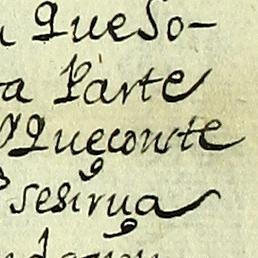 Que So-
a Parte
Queconste
sesirua